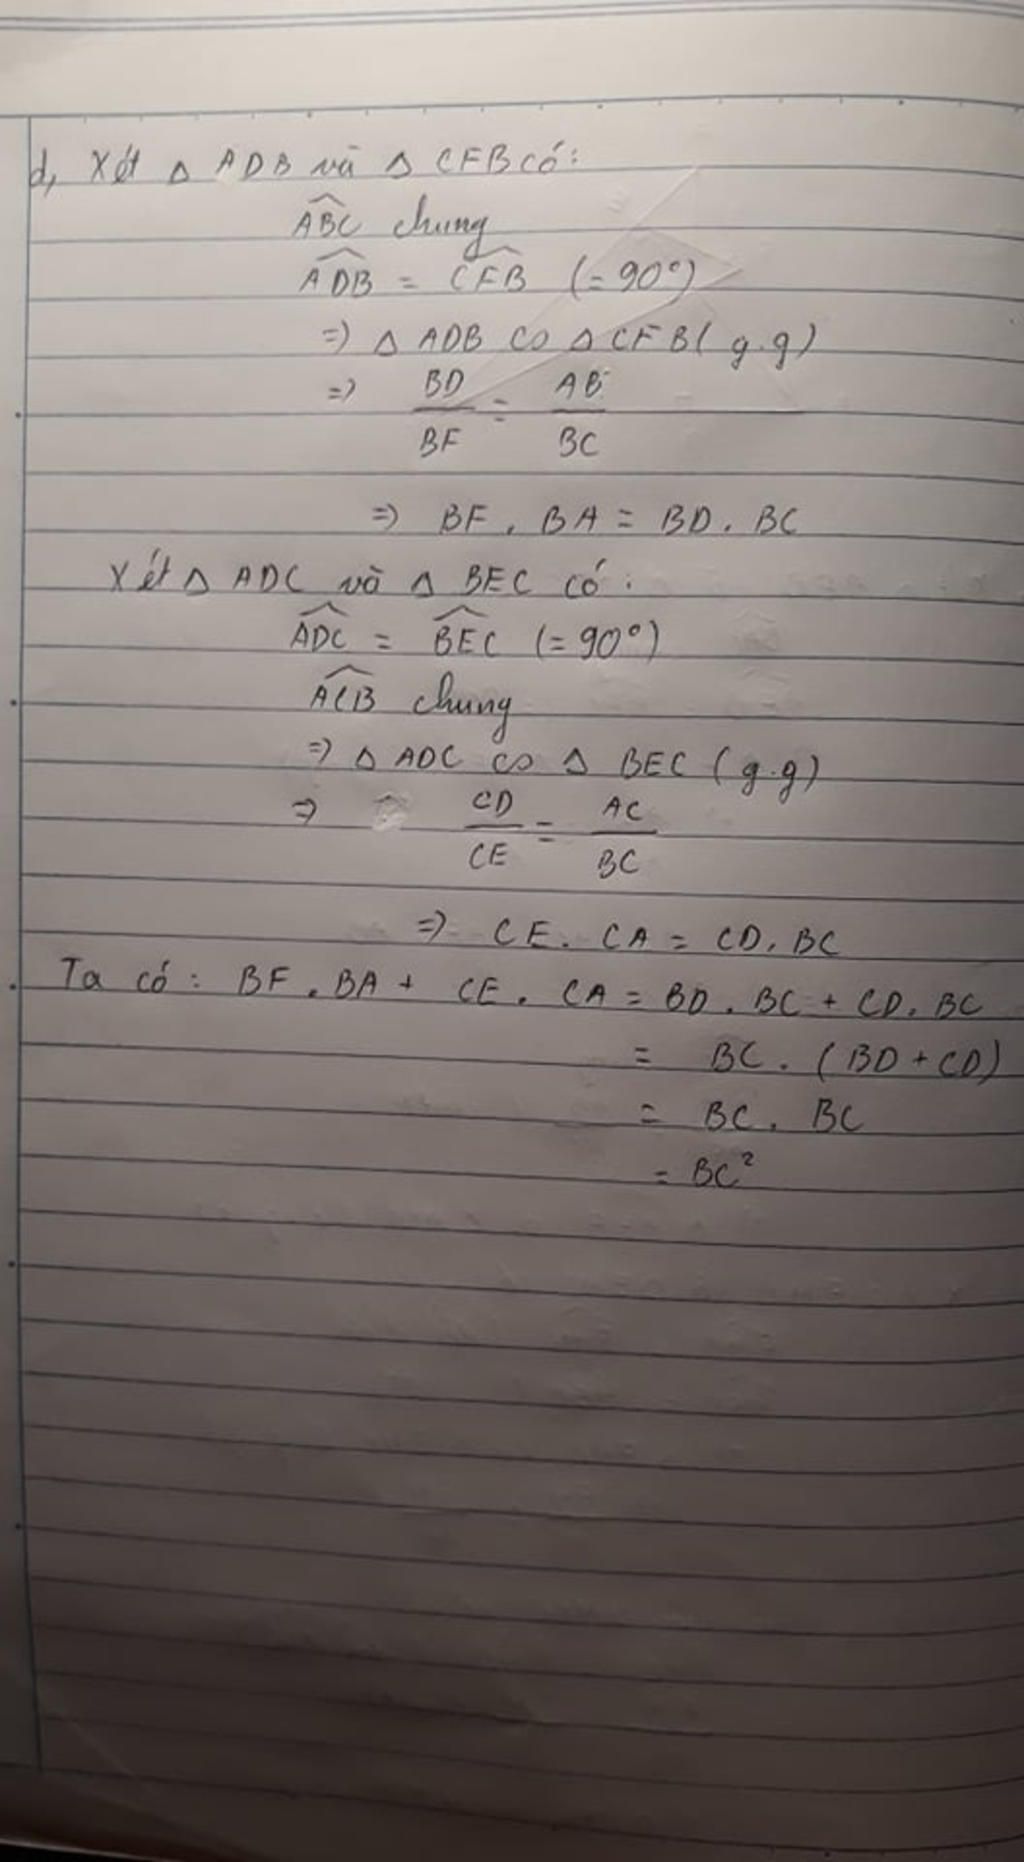 d, Xét △ ADB và △ CFB có:
$\widehat{ABC}$ chung
$\widehat{ADB}$ = $\widehat{CFB}$ (= 90°)
=> △ ADB ∽ △ CFB ( g.g)
=> $\frac{BD}{BF}$ = $\frac{AB}{BC}$
=> BF . BA = BD . BC
Xét △ ADC và △ BEC có :
$\widehat{ADC}$ = $\widehat{BEC}$ (= 90°)
$\widehat{ACB}$ chung
=> △ ADC ∽ △ BEC ( g.g)
=> $\frac{CD}{CE}$ = $\frac{AC}{BC}$
=> CE . CA = CD . BC
Ta có : BF . BA + CE . CA = BD . BC + CD . BC
= BC . (BD + CD)
= BC . BC
= BC²